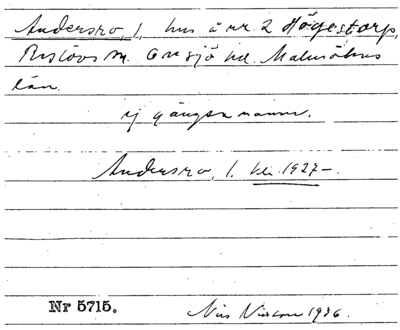 Andersro, 1, hus å nr. 2 Högestorp,
Risløvs sn. Onsjö hd. Malmöhus
län.
ej gängse namn.
Andersro, 1. bei. 1927–.
Nr 5715.
Nils Nilsson 1936.